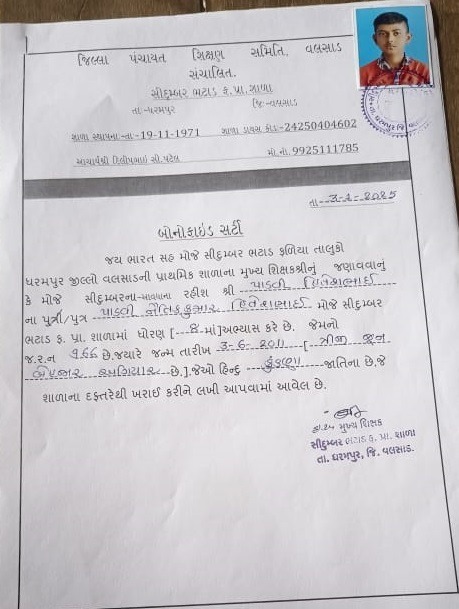 જિલ્લા પંચાયત શિક્ષણ સમિતિ, વલસાડ
સંચાલિત.
સીદુમ્બર ભટાડ ફ. પ્રા. શાળા
તા:-ધરમપુર જિ:-વલસાડ
શાળા સ્થાપના-તા-19-11-1971 શાળા ડાયસ કોડ-24250404602
આચાર્યશ્રી દિલીપભાઇ સી.પટેલ મો.નં. 9925111785
તા-
બોનોફાઇડ સર્ટી
જય ભારત સહ મોજે સીદુમ્બર ભટાડ ફળિયા તાલુકો
ધરમપુર જીલ્લો વલસાડની પ્રાથમિક શાળાના મુખ્ય શિક્ષકશ્રીનું જણાવવાનું
કે મોજે સીદુમ્બરના રહીશ શ્રી પાડવી હિતેશભાઈ
ના પુત્રી/પુત્ર પાડવી નૈતિકકુમાર હિતેશભાઈ મોજે સીદુમ્બર
ભટાડ ફ. પ્રા. શાળામાં ધોરણ [ 8 માં]અભ્યાસ કરે છે. જેમનો
જ.ર.નં 966 છે.જયારે જન્મ તારીખ 3-6-2011 [ ત્રીજી જૂન
બેહજાર અગિયાર છે.].જેઓ હિન્દુ કુંકણા જાતિના છે,જે
શાળાના દફતરેથી ખરાઈ કરીને લખી આપવામાં આવેલ છે.
મુખ્ય શિક્ષક
સીદુમ્બર ભટાડ ફ. પ્રા. શાળા
તા. ધરમપુર, જિ. વલસાડ.